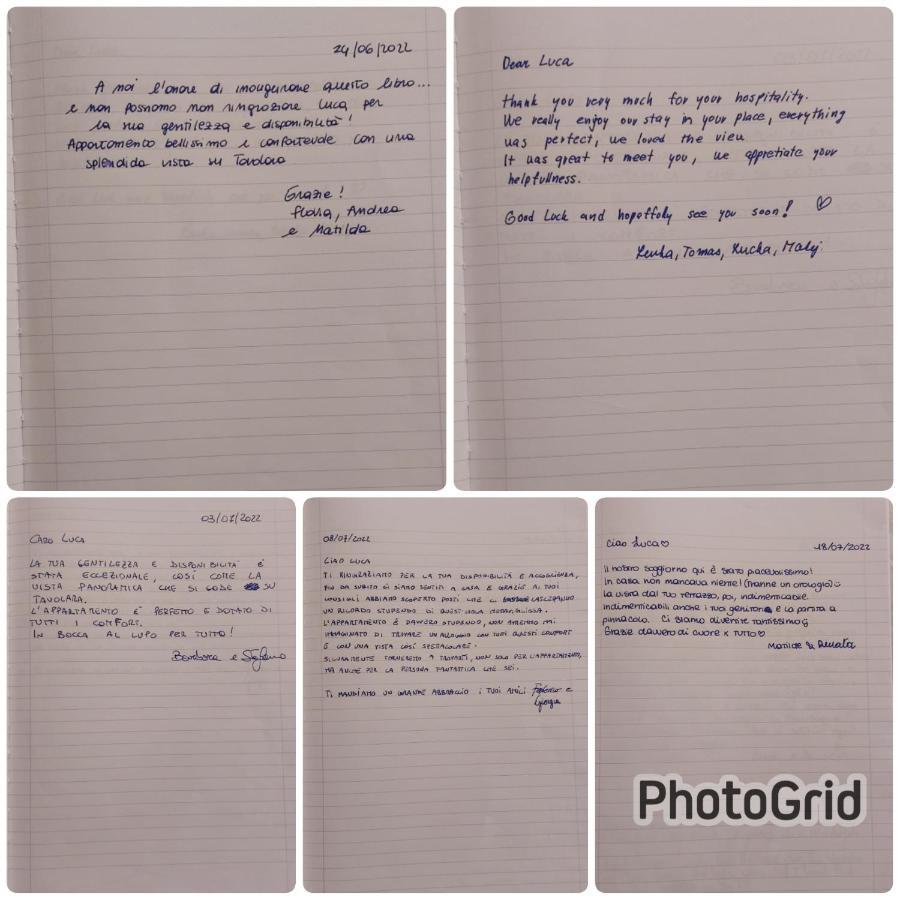 24/06/2022
A noi l'onore di inaugurare questo libro...
e non possiamo non ringraziare Luca per
la sua gentilezza e disponibilità!
Appartamento bellissimo e confortevole con una
splendida vista su Tavolara
Grazie!
Flavia, Andrea
e Matilda
Dear Luca
Thank you very much for your hospitality.
We really enjoy our stay in your place, everything
was perfect, we loved the view
It was great to meet you, we appretiate your
helpfullness.
Good Luck and hopeffoly see you soon! ♡
Lenka, Tomas, Lucka, Matej
03/07/2022
CARO LUCA
LA TUA GENTILEZZA E DISPONIBILITA' E'
STATA ECCEZIONALE, COSÌ COME LA
VISTA PANORAMICA CHE SI GODE SU
TAVOLARA.
L'APPARTAMENTO E' PERFETTO E DOTATO DI
TUTTI I COMFORT.
IN BOCCA AL LUPO PER TUTTO!
Barbara e Stefano
08/07/2022
CIAO LUCA
TI RINGRAZIAMO PER LA TUA DISPONIBILITÀ E ACCOGLIENZA,
FIN DA SUBITO CI SIAMO SENTITI A CASA E GRAZIE AI TUOI
CONSIGLI ABBIAMO SCOPERTO POSTI CHE CI LASCERANNO
UN RICORDO STUPENDO DI QUEST'ISOLA MERAVIGLIOSA.
L'APPARTAMENTO È DAVVERO STUPENDO, NON AVREMMO MAI
IMMAGINATO DI TROVARE UN ALLOGGIO CON TUTTI QUESTI COMFORT
E CON UNA VISTA COSÌ SPETTACOLARE.
SICURAMENTE TORNEREMO A TROVARTI, NON SOLO PER L'APPARTAMENTO,
MA ANCHE PER LA PERSONA FANTASTICA CHE SEI.
TI MANDIAMO UN GRANDE ABBRACCIO I TUOI AMICI Federico e
Giorgia
Ciao Luca♡
18/07/2022
Il nostro soggiorno qui è stato piacevolissimo!
In casa non mancava niente! (tranne un orologio) :)
La vista dal tuo terrazzo, poi, indimenticabile.
Indimenticabili anche i tuoi genitori e la partita a
pinnacolo. Ci siamo divertite tantissimo :)
Grazie davvero di cuore x tutto♡
Matilde & Renata
PhotoGrid